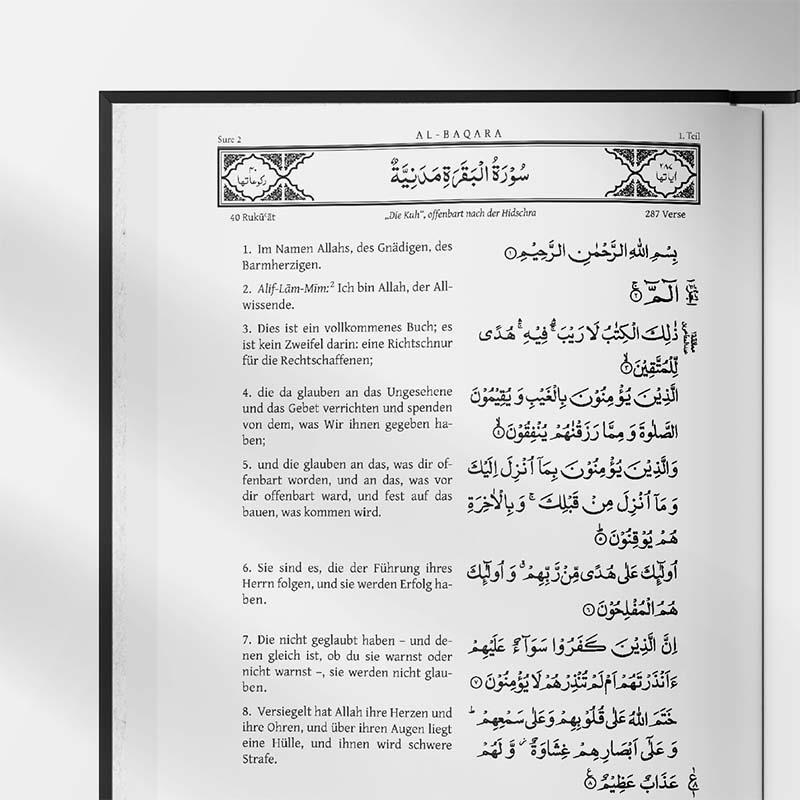 Sure 2
AL-BAQARA
1. Teil
٤٠
رکوعاتها
سُوۡرَةُ الۡبَقَرَةِ مَدَنِيَّةٌ
٢٨٧
اٰياتها
40 Rukūʿāt
„Die Kuh“, offenbart nach der Hidschra
287 Verse
1. Im Namen Allahs, des Gnädigen, des
Barmherzigen.
2. Alif-Lām-Mīm:² Ich bin Allah, der All-
wissende.
3. Dies ist ein vollkommenes Buch; es
ist kein Zweifel darin: eine Richtschnur
für die Rechtschaffenen;
4. die da glauben an das Ungesehene
und das Gebet verrichten und spenden
von dem, was Wir ihnen gegeben ha-
ben;
5. und die glauben an das, was dir of-
fenbart worden, und an das, was vor
dir offenbart ward, und fest auf das
bauen, was kommen wird.
6. Sie sind es, die der Führung ihres
Herrn folgen, und sie werden Erfolg ha-
ben.
7. Die nicht geglaubt haben – und de-
nen gleich ist, ob du sie warnst oder
nicht warnst –, sie werden nicht glau-
ben.
8. Versiegelt hat Allah ihre Herzen und
ihre Ohren, und über ihren Augen liegt
eine Hülle, und ihnen wird schwere
Strafe.
بِسۡمِ اللّٰهِ الرَّحۡمٰنِ الرَّحِيۡمِ ۝١
الٓمّٓ ۚ‏ ۝٢
ذٰلِكَ الۡكِتٰبُ لَا رَيۡبَ ۛۚ فِيۡهِ ۛۚ هُدًى
لِّلۡمُتَّقِيۡنَ ۙ‏ ۝٣
الَّذِيۡنَ يُؤۡمِنُوۡنَ بِالۡغَيۡبِ وَ يُقِيۡمُوۡنَ
الصَّلٰوةَ وَ مِمَّا رَزَقۡنٰهُمۡ يُنۡفِقُوۡنَ ۙ‏ ۝٤
وَالَّذِيۡنَ يُؤۡمِنُوۡنَ بِمَاۤ اُنۡزِلَ اِلَيۡكَ
وَ مَاۤ اُنۡزِلَ مِنۡ قَبۡلِكَ ۚ وَ بِالۡاٰخِرَةِ
هُمۡ يُوۡقِنُوۡنَ ؕ‏ ۝٥
اُولٰٓئِكَ عَلٰى هُدًى مِّنۡ رَّبِّهِمۡ ٭ وَ اُولٰٓئِكَ
هُمُ الۡمُفۡلِحُوۡنَ ۝٦
اِنَّ الَّذِيۡنَ كَفَرُوۡا سَوَآءٌ عَلَيۡهِمۡ
ءَاَنۡذَرۡتَهُمۡ اَمۡ لَمۡ تُنۡذِرۡهُمۡ لَا يُؤۡمِنُوۡنَ ۝٧
خَتَمَ اللّٰهُ عَلٰى قُلُوۡبِهِمۡ وَعَلٰى سَمۡعِهِمۡ ؕ
وَ عَلٰۤى اَبۡصَارِهِمۡ غِشَاوَةٌ ۫ وَّ لَهُمۡ
عَذَابٌ عَظِيۡمٌ ۝٨